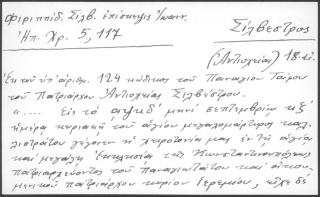 Φιριππίδ. Σιλβ. ἐπίσκεψις Ἰωανν.
Ἠπ. Χρ. 5, 117
Σίλβεστρος
(Ἀντιοχείας) 18. αἰ.
Ἐκ τοῦ ὑπ' ἀριθμ. 124 κώδικος τοῦ Παναγίου Τάφου
τοῦ Πατριάρχου Ἀντιοχείας Σιλβέστρου.
«.... Εἰς τὸ αψκδ' μηνὶ σεπτεμβρίῳ κζ'
ἡμέρᾳ κυριακῇ τοῦ ἁγίου μεγαλομάρτυρος Καλ-
λιστράτου γέγονεν ἡ χειροτονία μας ἐν τῇ ἁγίᾳ
καὶ μεγάλῃ Ἐκκλησίᾳ τῆς Κωνσταντινουπόλεως
πατριαρχεύοντος τοῦ παναγιωτάτου καὶ οἰκου-
μενικοῦ πατριάρχου κυρίου Ἱερεμίου,